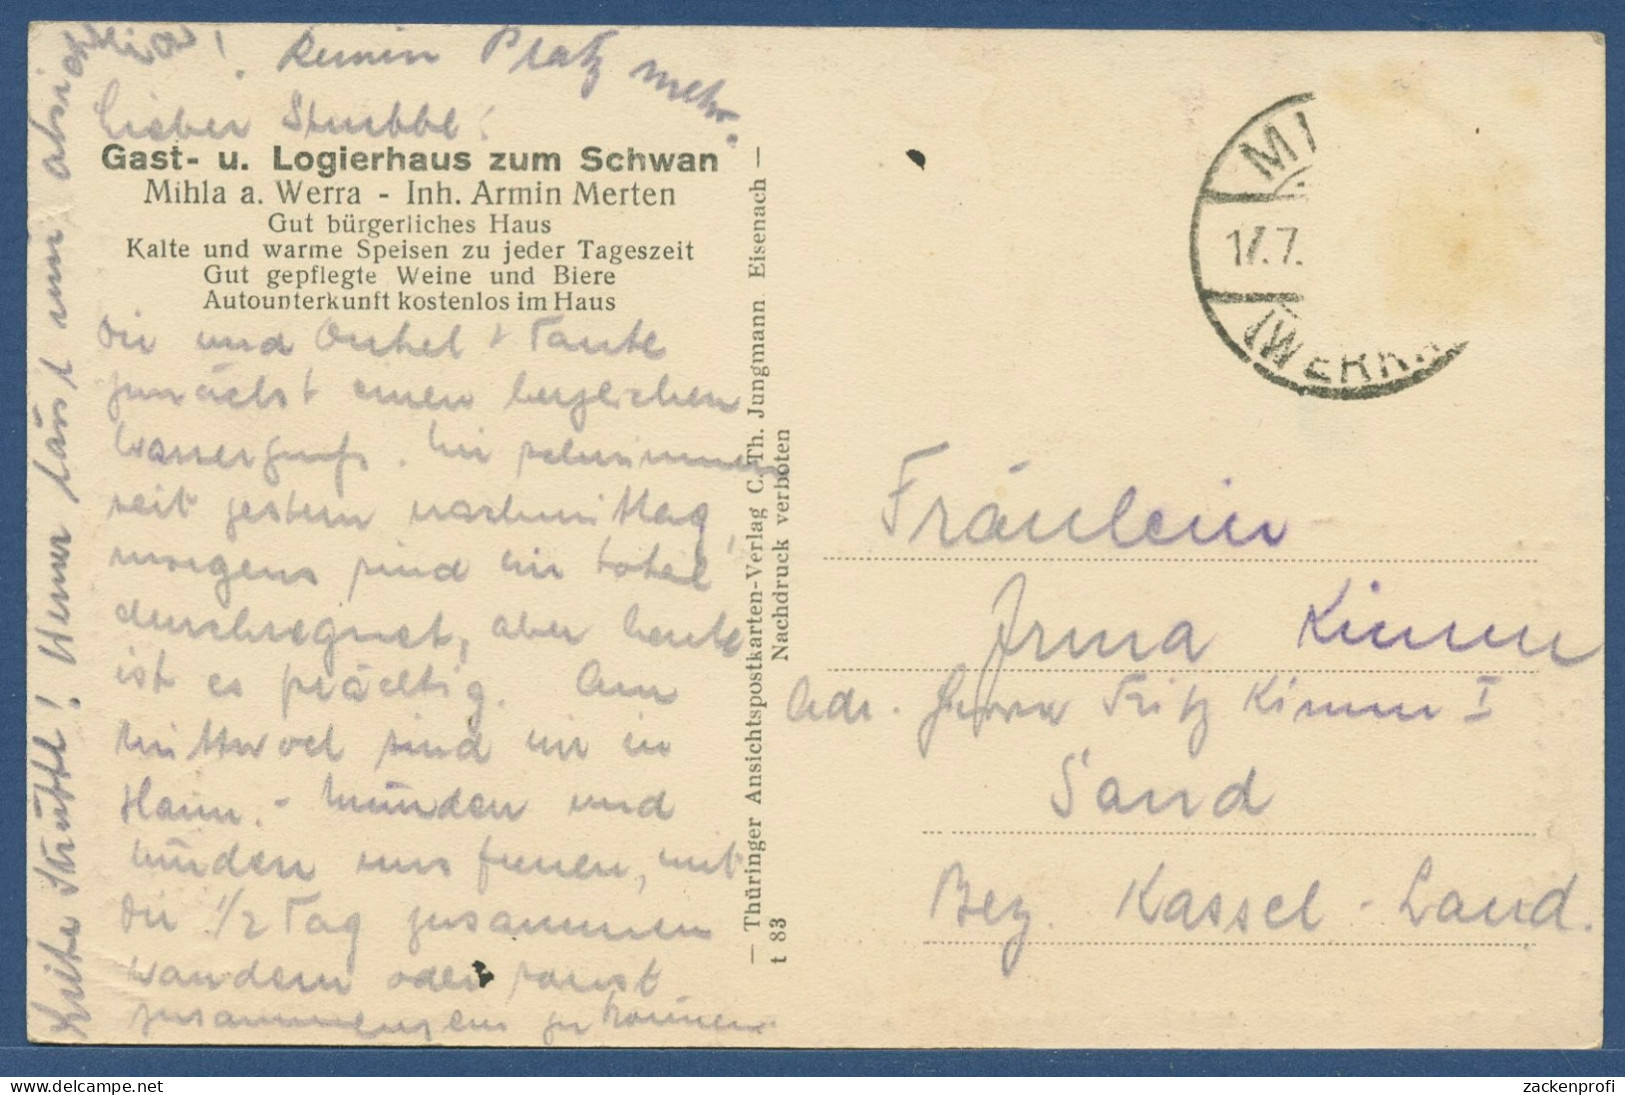 Kein Platz mehr.
Lieber Strubbel!
Gast- u. Logierhaus zum Schwan
Mihla a. Werra - Inh. Armin Merten
Gut bürgerliches Haus
Kalte und warme Speisen zu jeder Tageszeit
Gut gepflegte Weine und Biere
Autounterkunft kostenlos im Haus
Dir und Onkel + Tante
zunächst einen herzlichen
Wassergruß. Wir schwimmen
seit gestern nachmittag,
morgens sind wir total
durchregnet, aber heute
ist es prächtig. Am
Mittwoch sind wir in
Hann.-Münden und
würden uns freuen, mit
Dir 1/2 Tag zusammen
wandern oder sonst
zusammensein zu können.
läßt nun
— Thüringer Ansichtspostkarten-Verlag C. Th. Jungmann Eisenach —
t 83 Nachdruck verboten
MI
17.7.
(WERRA
Fräulein
Irma Kimm
Adr. Herrn Fritz Kimm I
Sand
Bez. Kassel-Land.
zackenprofi
© delcampe.net